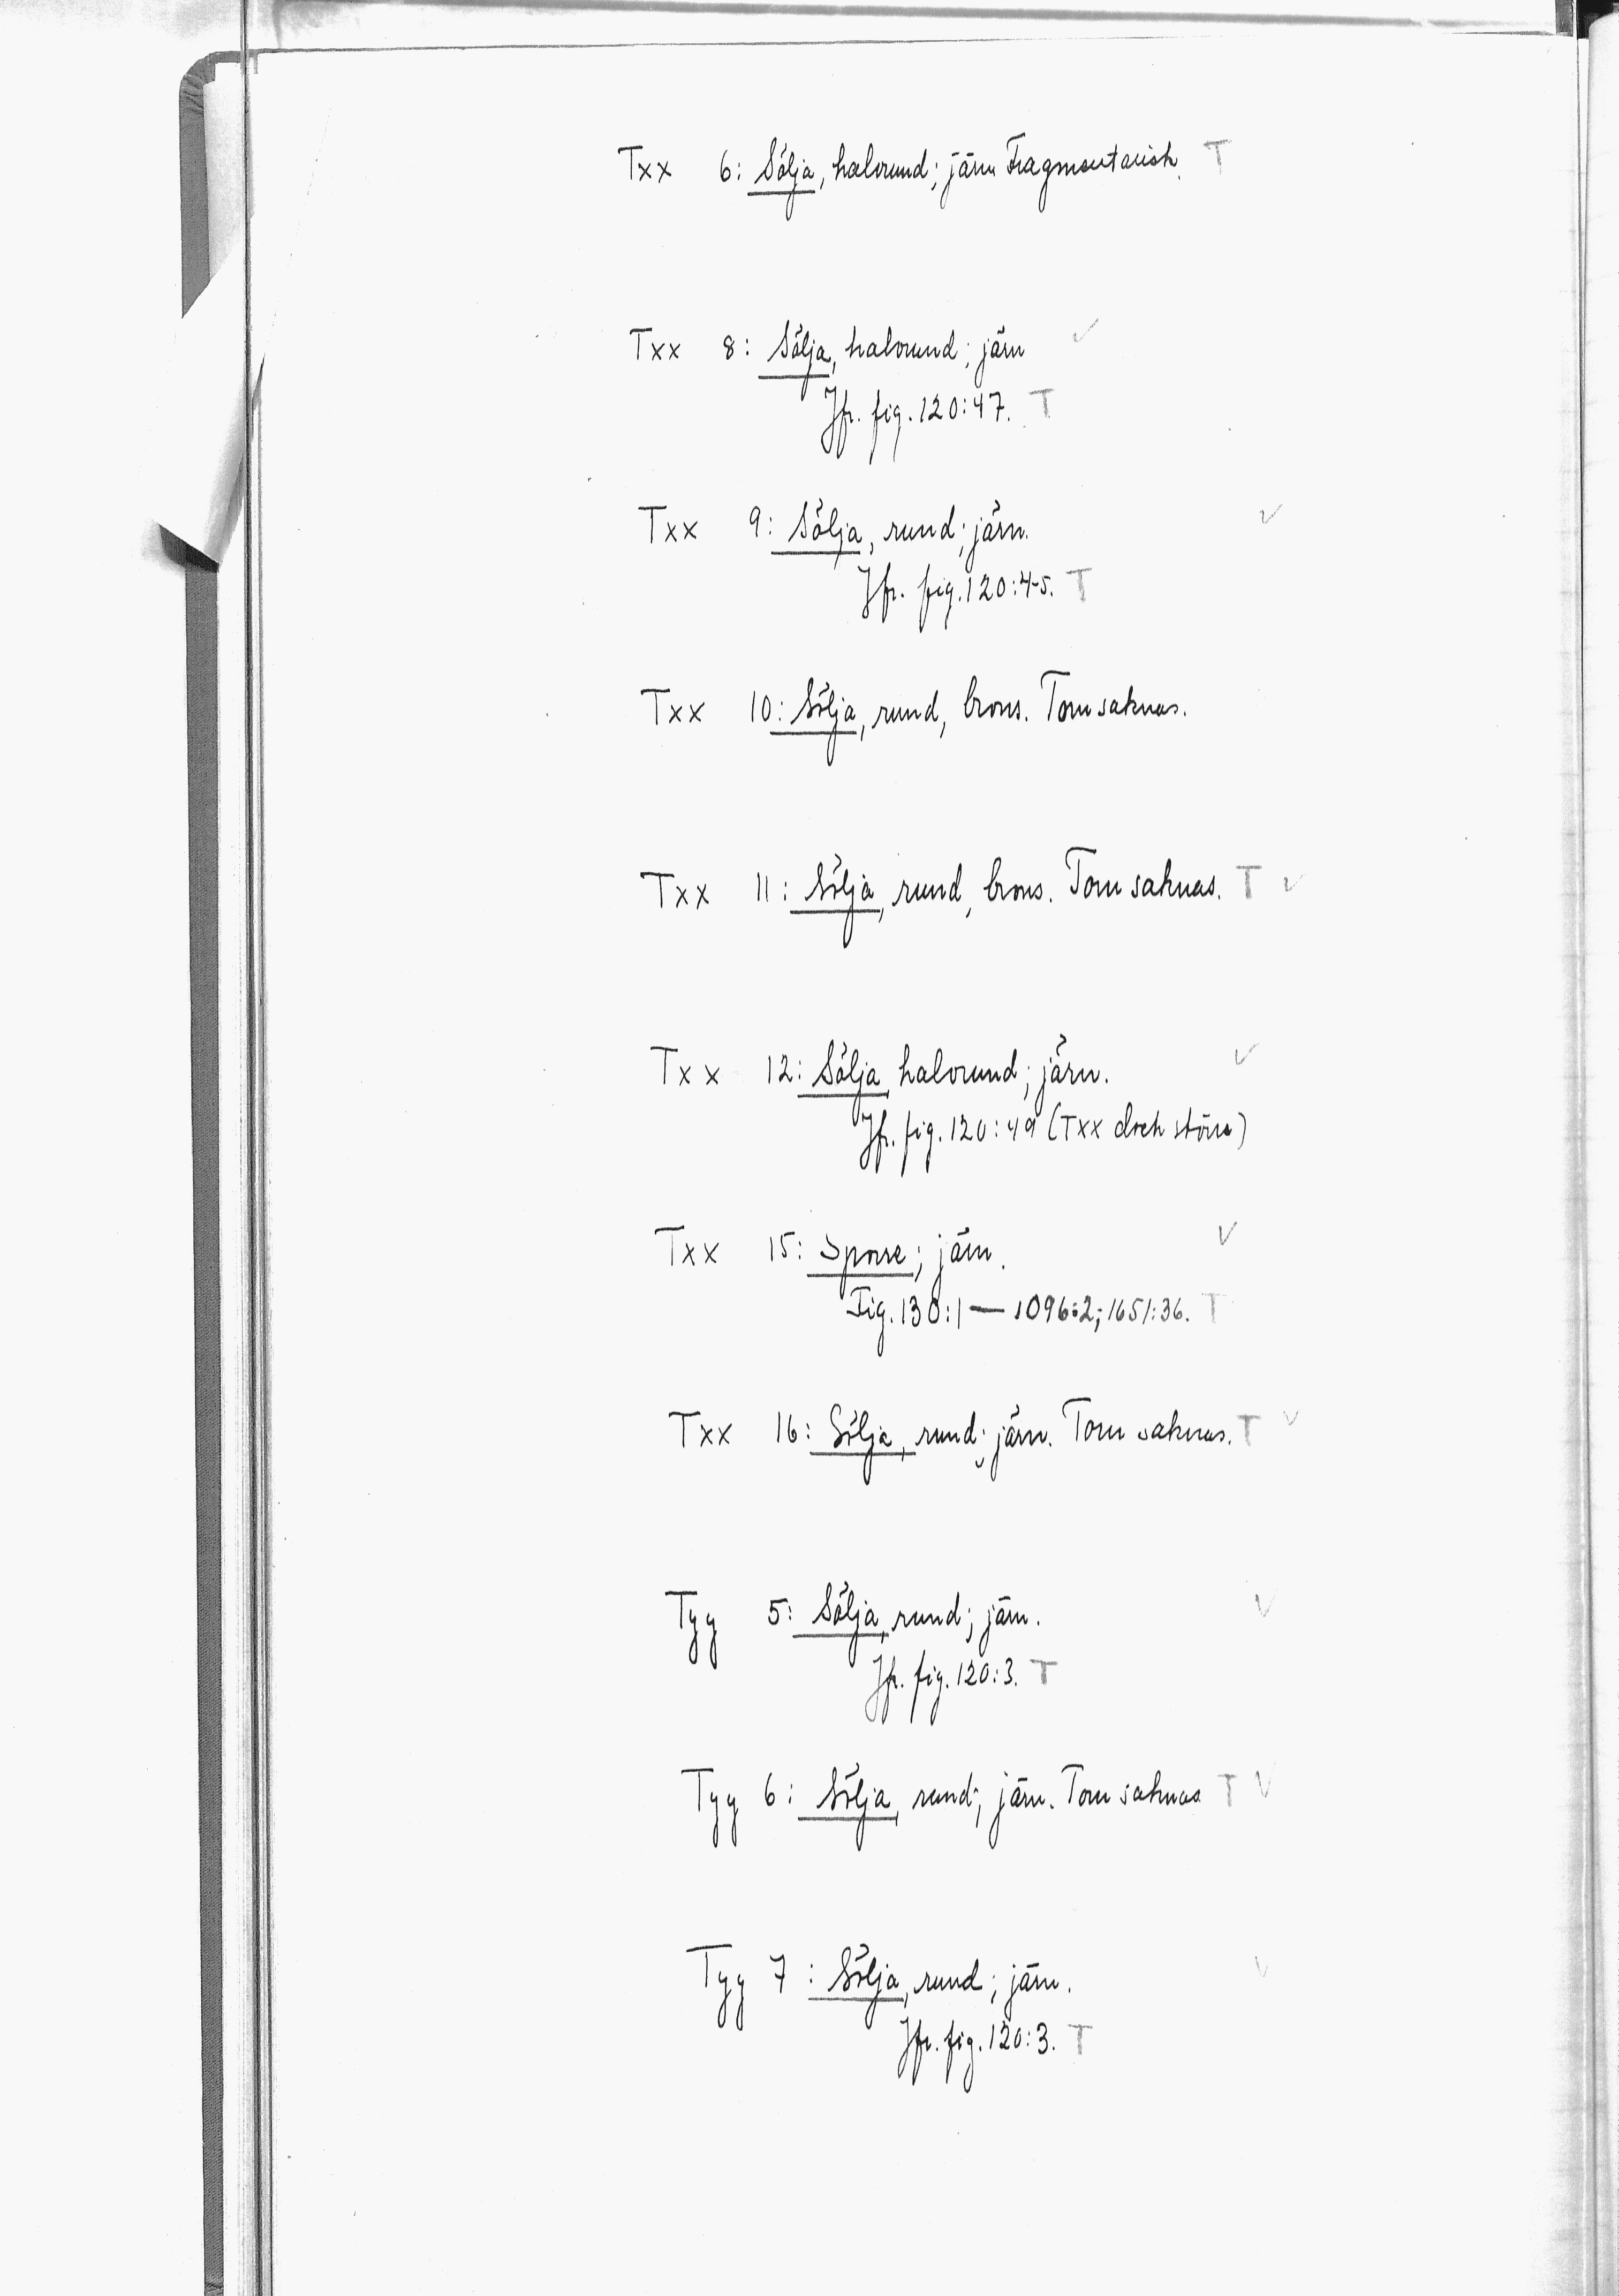 Txx 6: Sölja, halvrund; järn Fragmentarisk. T
Txx 8: Sölja, halvrund; järn ✓
Jfr. fig. 120:47. T
Txx 9: Sölja, rund; järn. ✓
Jfr. fig. 120:4-5. T
Txx 10: Sölja, rund, brons. Torn saknas.
Txx 11: Sölja, rund, brons. Torn saknas. T ✓
Txx 12: Sölja, halvrund; järn. ✓
Jfr. fig. 120:49 (Txx dock större)
Txx 15: Sporre; järn. ✓
Fig. 130:1 — 1096:2; 1651:36. T
Txx 16: Sölja, rund; järn. Torn saknas. T ✓
Tyy 5: Sölja, rund; järn. ✓
Jfr. fig. 120:3. T
Tyy 6: Sölja, rund; järn. Torn saknas T ✓
Tyy 7: Sölja, rund; järn. ✓
Jfr. fig. 120:3. T